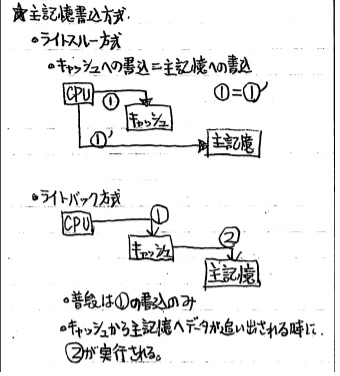 ★主記憶書込方式
•ライトスルー方式
•キャッシュへの書込=主記憶への書込
CPU
①
①=①′
キャッシュ
①′
主記憶
•ライトバック方式
CPU
①
キャッシュ
②
主記憶
•普段は①の書込のみ
•キャッシュから主記憶へデータが追い出される時に、
②が実行される。